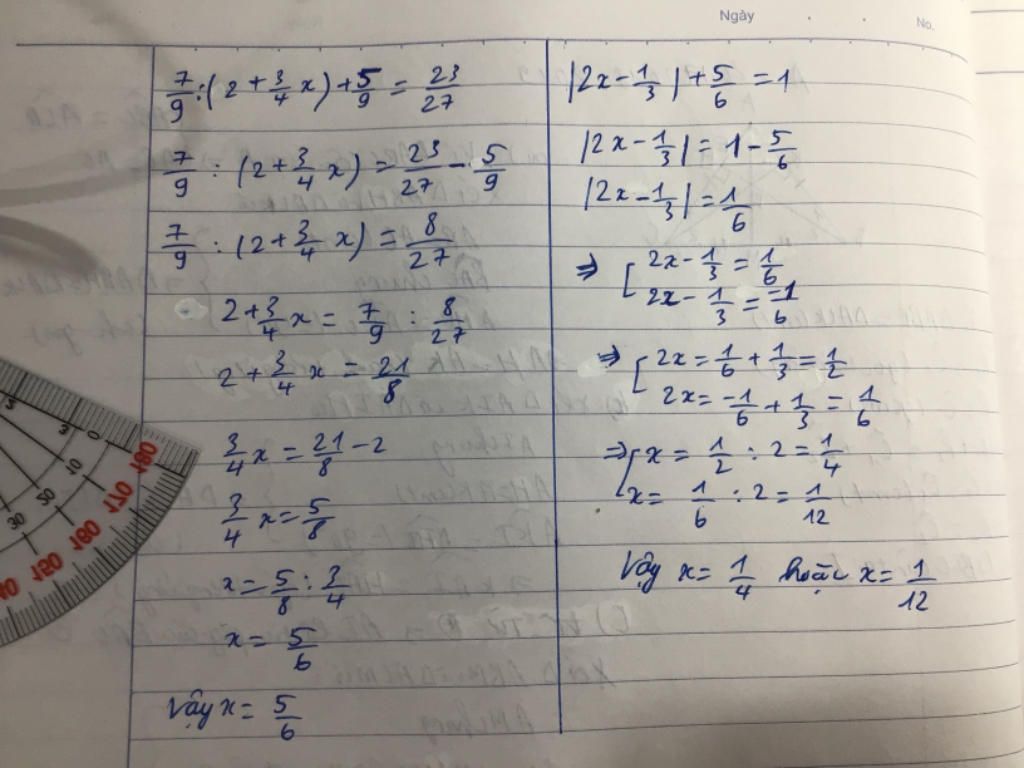 Ngày
No.
7/9 : (2 + 3/4 x) + 5/9 = 23/27
7/9 : (2 + 3/4 x) = 23/27 - 5/9
7/9 : (2 + 3/4 x) = 8/27
2 + 3/4 x = 7/9 : 8/27
2 + 3/4 x = 21/8
3/4 x = 21/8 - 2
3/4 x = 5/8
x = 5/8 : 3/4
x = 5/6
Vậy x = 5/6
|2x - 1/3| + 5/6 = 1
|2x - 1/3| = 1 - 5/6
|2x - 1/3| = 1/6
⇒ [ 2x - 1/3 = 1/6
2x - 1/3 = -1/6
⇒ [ 2x = 1/6 + 1/3 = 1/2
2x = -1/6 + 1/3 = 1/6
⇒ [ x = 1/2 : 2 = 1/4
x = 1/6 : 2 = 1/12
Vậy x = 1/4 hoặc x = 1/12
5
3
0
10
50
30
180
170
160
150